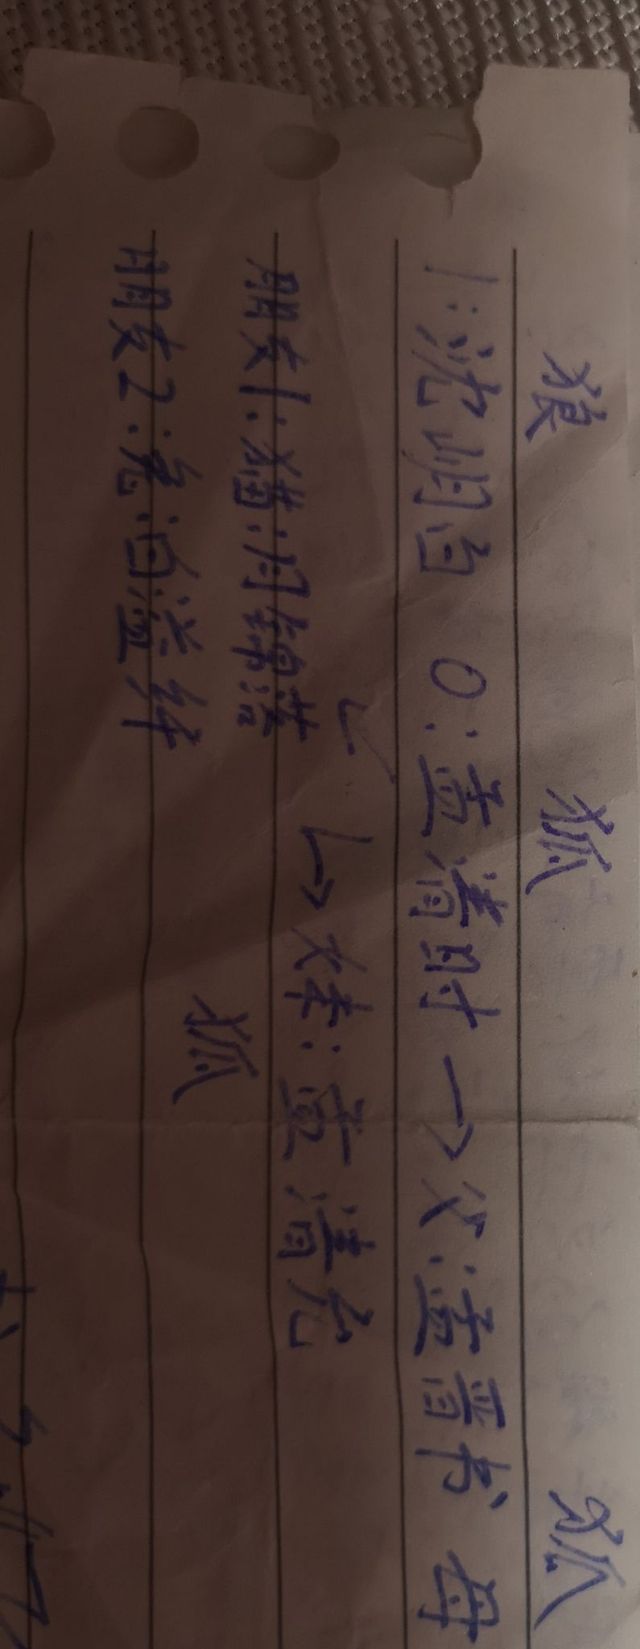 狼 狐 狐
1:沈明白 0:孟清时→父:孟晋书 母
朋友1:猫:月锦落 ↳妹:孟清允
朋友2:兔:白溢纤 狐